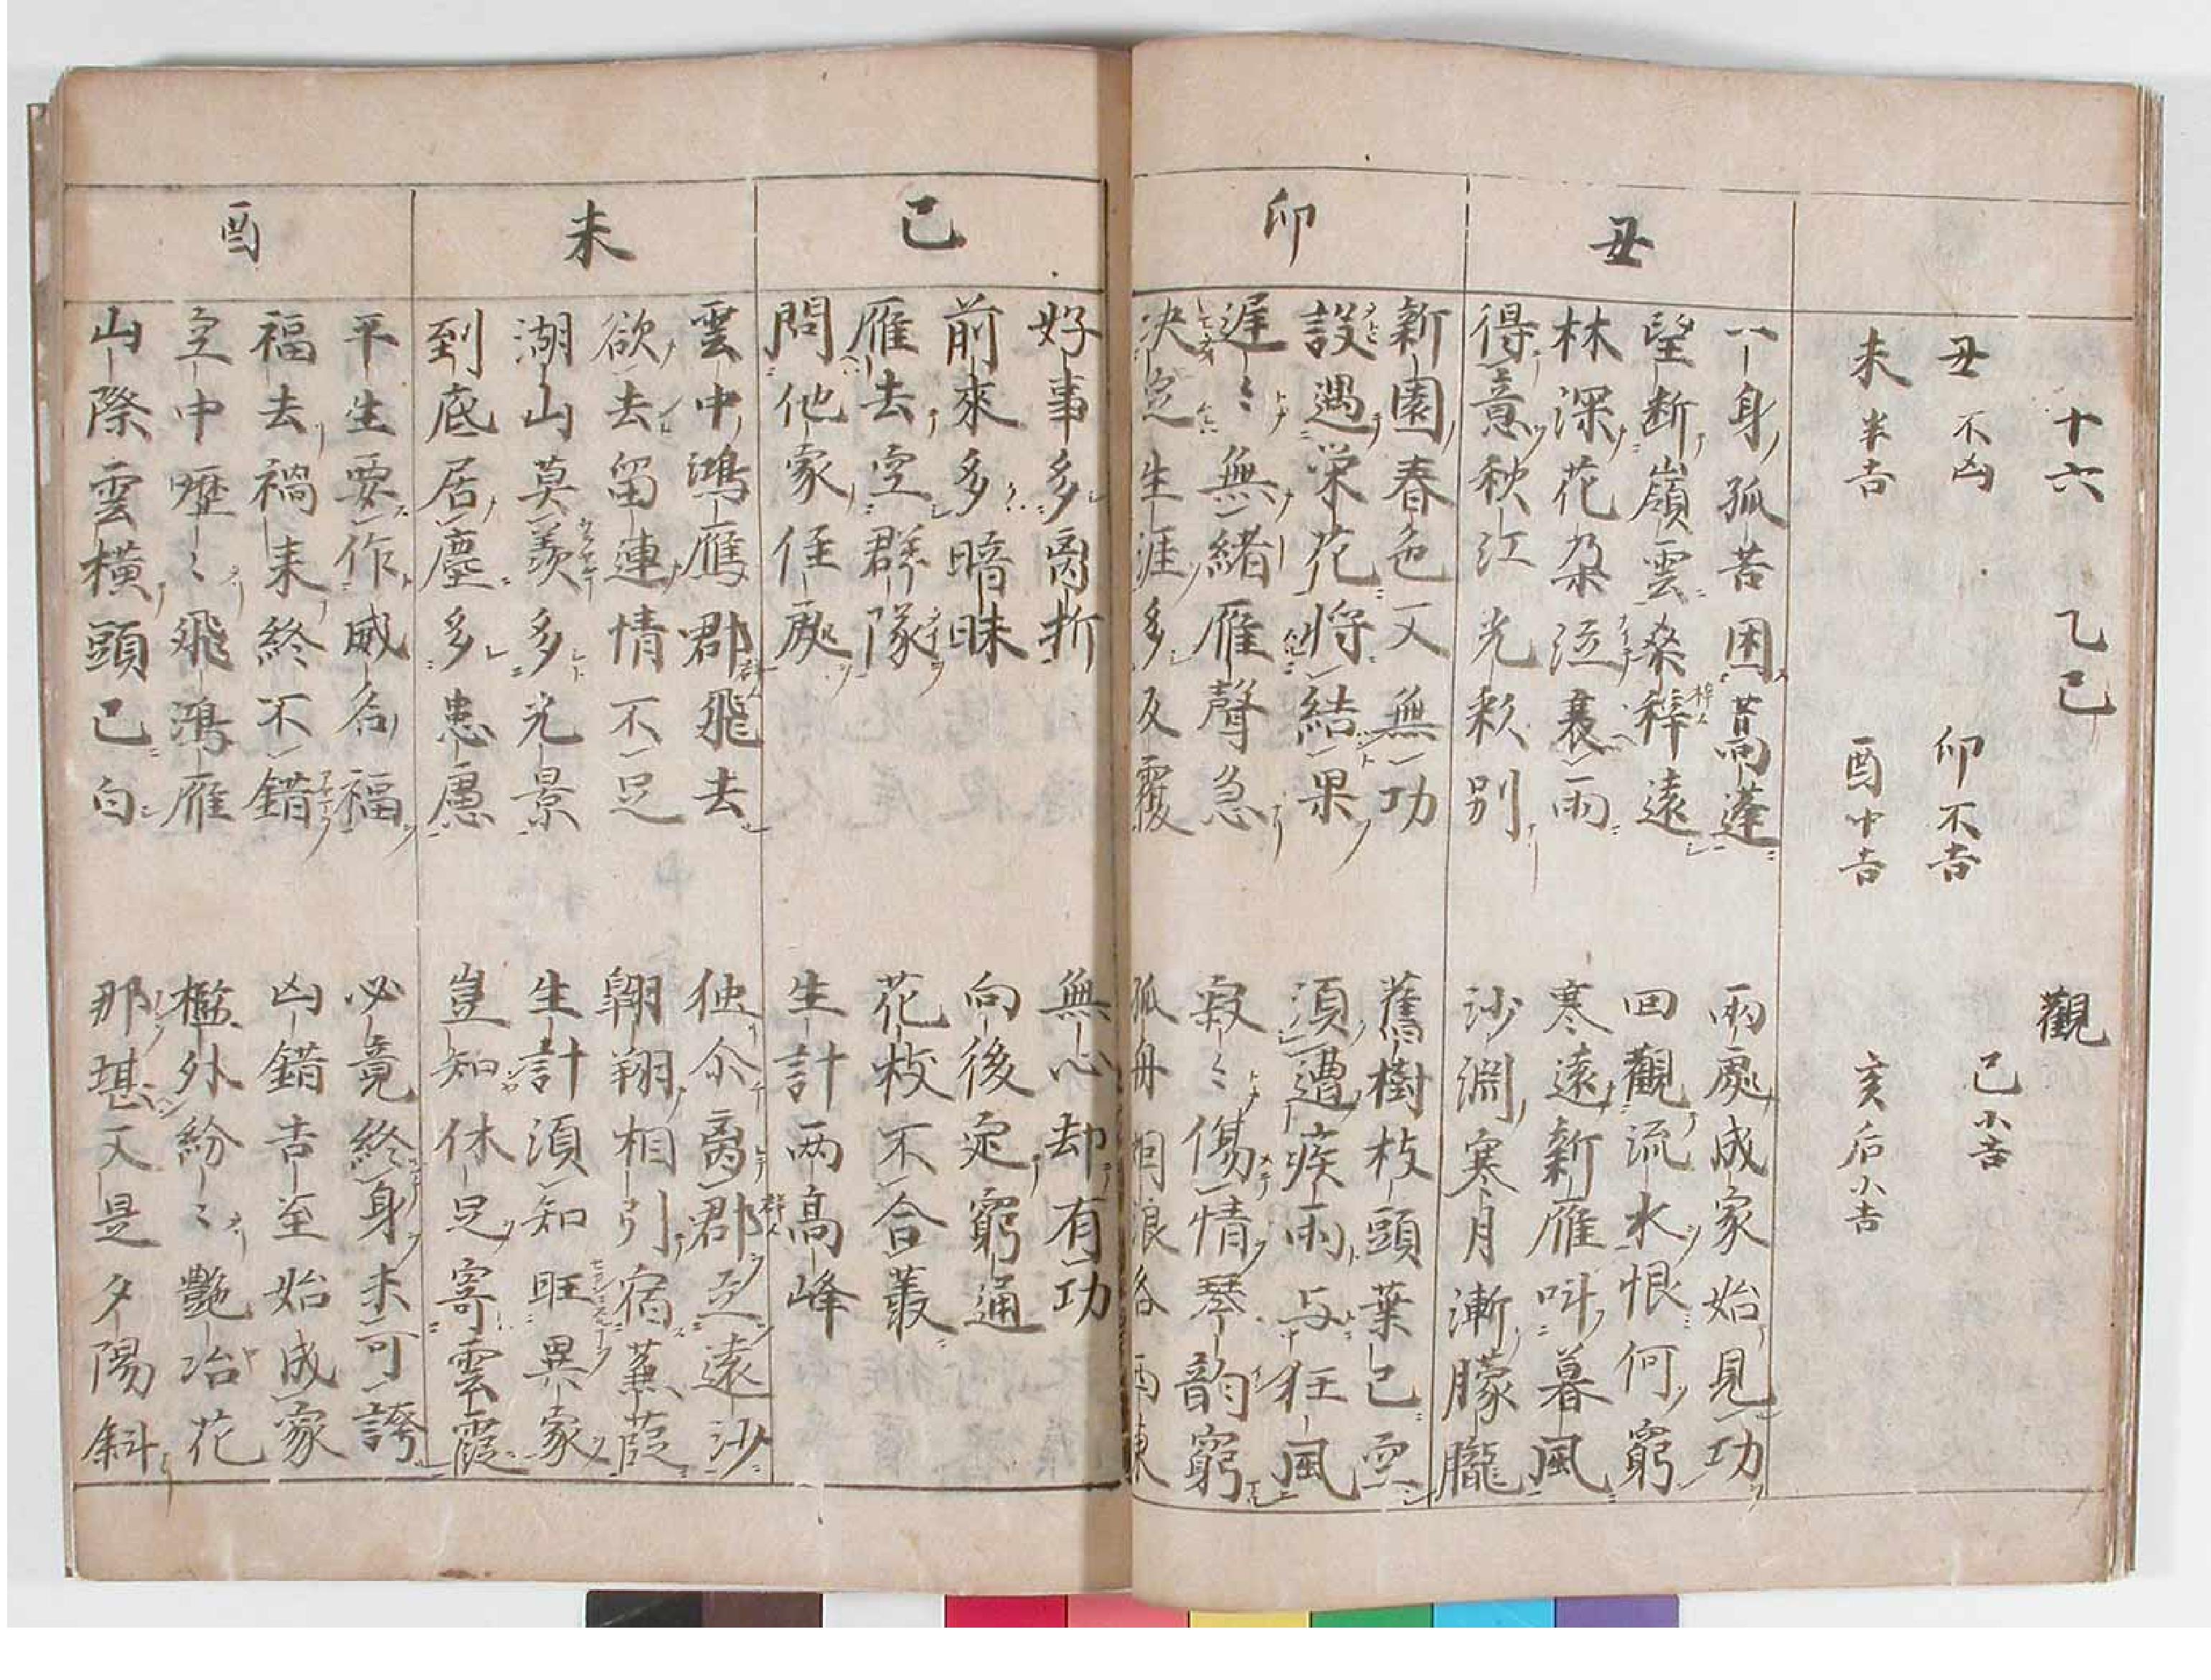 十六 乙巳 觀
丑不凶 卯不吉 巳小吉
未半吉 酉中吉 亥后小吉
丑
一身孤苦困蒿蓬 兩處成家始見功
望断嶺雲桑梓遠 回觀流水恨何窮
林深花朶泣裛雨 寒遠新雁叫暮風
得意秋江光彩別 沙渊寒月漸朦朧
卯
新園春色又無功 舊樹枝頭葉已空
設遇栄花将結果 須遭疾雨与狂風
遅〻無緒雁聲急 寂〻傷情琴韵窮
决定生涯多反覆 孤舟
巳
好事多离折 無心却有功
前來多暗昧 向後定窮通
雁去空群隊 花枝不合叢
問他家住處 生計两高峰
未
雲中鴻鴈郡飛去 独尒离郡立遠沙
欲去留連情不足 翺翔相引宿蒹葭
湖山莫羨多光景 生計須知旺異家
到底居塵多患慮 豈知休足寄雲霞
酉
平生要作威名福 必竟終身未可誇
福去禍来終不錯 凶錯吉至始成家
空中歴〻飛鴻雁 檻外紛〻艶冶花
山際雲横頭已白 那堪又是夕陽斜